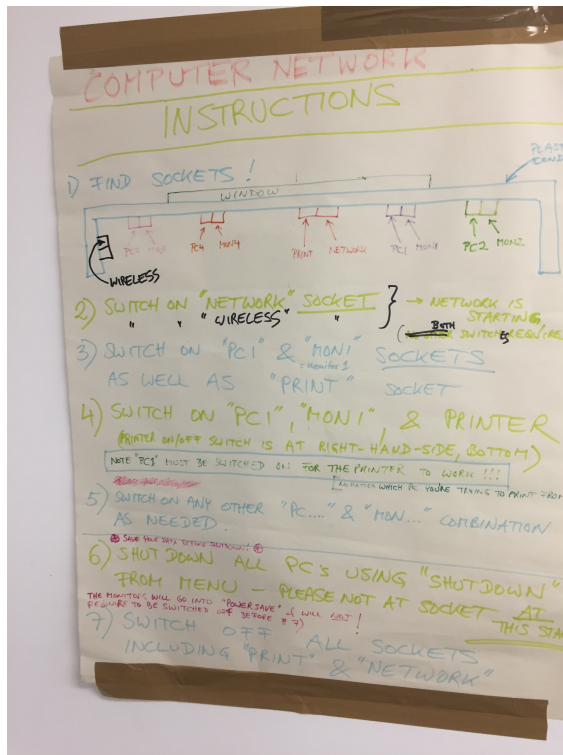 COMPUTER NETWORK
INSTRUCTIONS
1) FIND SOCKETS!
WINDOW
PC4 MON4 PRINT NETWORK PC1 MON1 PC2 MON2
WIRELESS
2) SWITCH ON "NETWORK" SOCKET → NETWORK IS
" " "WIRELESS" " STARTING
BOTH SWITCH REQUIRE
3) SWITCH ON "PC1" & "MON1" SOCKETS
= monitor 1
AS WELL AS "PRINT" SOCKET
4) SWITCH ON "PC1", "MON1", & PRINTER
(PRINTER ON/OFF SWITCH IS AT RIGHT-HAND-SIDE, BOTTOM)
NOTE "PC1" MUST BE SWITCHED ON FOR THE PRINTER TO WORK!!!
NO MATTER WHICH PC YOU'RE TRYING TO PRINT FROM
5) SWITCH ON ANY OTHER "PC...." & "MON..." COMBINATION
AS NEEDED.
SAVE YOUR DATA BEFORE SHUTDOWN!
6) SHUT DOWN ALL PC'S USING "SHUTDOWN"
FROM MENU - PLEASE NOT AT SOCKET AT
THIS STA
THE MONITORS WILL GO INTO "POWERSAVE" & WILL NOT!
REQUIRE TO BE SWITCHED OFF BEFORE # 7)
7) SWITCH OFF ALL SOCKETS
INCLUDING "PRINT" & "NETWORK"